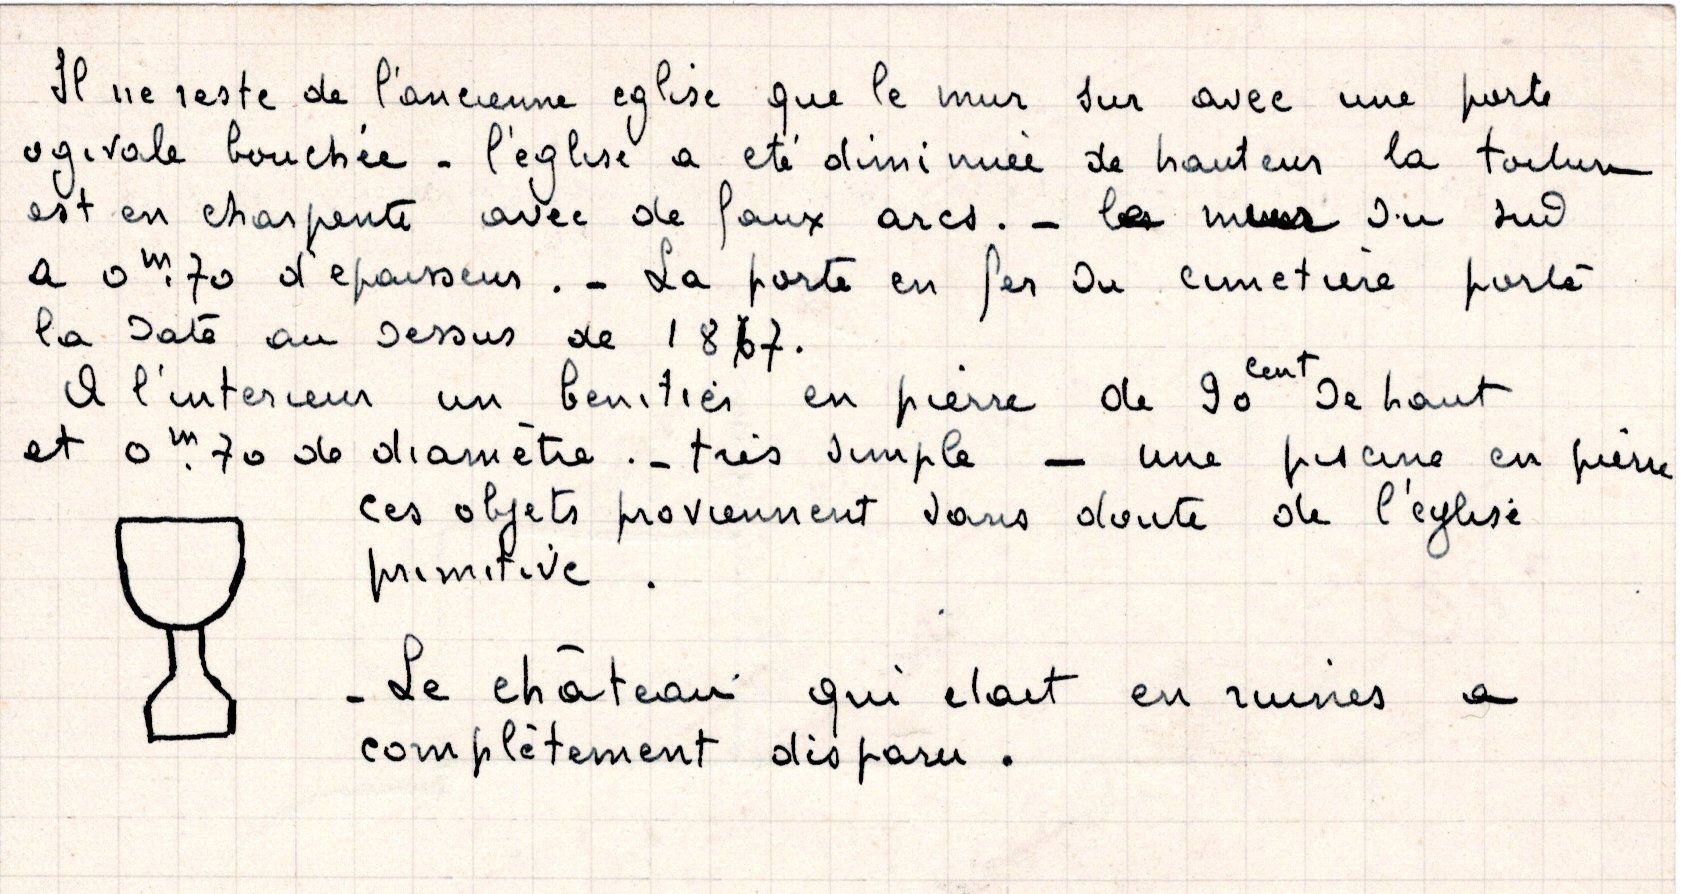 Il ne reste de l'ancienne eglise que le mur sur avec une porte
ogivale bouchée - l'église a eté diminuée de hauteur la toiture
est en charpente avec de faux arcs. - le mur du sud
a 0m.70 d'epaisseur. - La porte en fer du cimetière porte
la date au dessus de 1867.
A l'interieur un benitier en pierre de 90cent de haut
et 0m.70 de diamètre. - très simple - une piscine en pierre
ces objets proviennent sans doute de l'église
primitive.
- Le château qui etait en ruines a
complètement disparu.